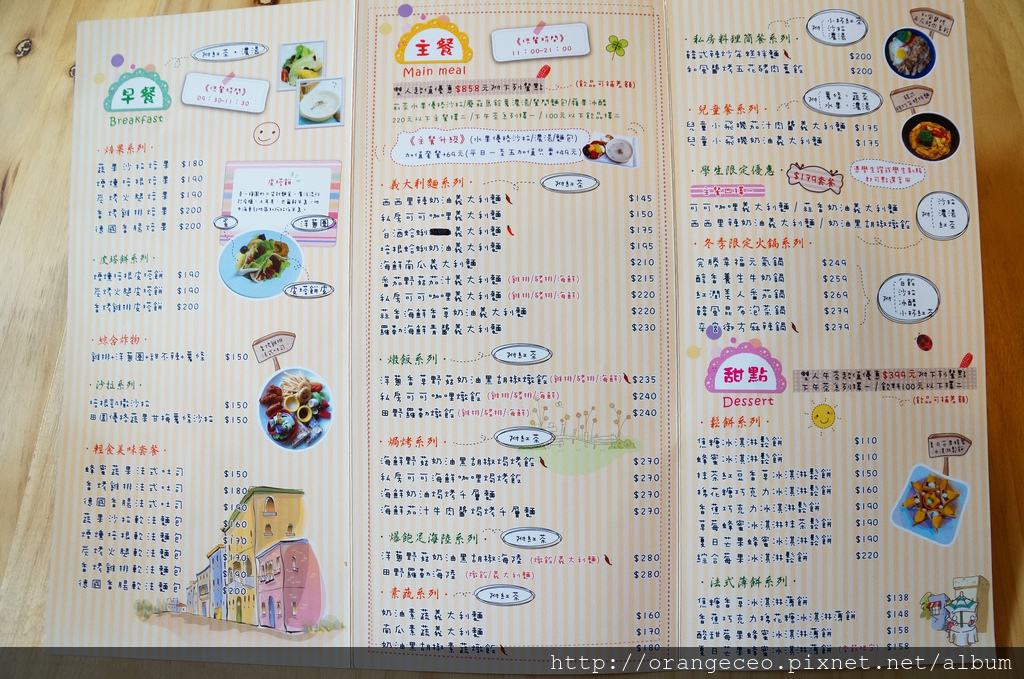 附紅茶、濃湯
早餐
Breakfast
《供餐時間》
09:30-11:30
·焙果系列·
蔬果沙拉焙果 $180
煙燻培根焙果 $190
炭烤火腿焙果 $190
香烤雞排焙果 $200
德國香腸焙果 $200
皮塔餅
洋蔥圈
皮塔餅皮
·皮塔餅系列·
煙燻培根皮塔餅 $190
炭烤火腿皮塔餅 $190
香烤雞排皮塔餅 $200
·綜合炸物·
雞排+洋蔥圈+甜不辣+薯條 $150
·沙拉系列·
培根凱撒沙拉 $150
田園優格蔬果甘梅薯條沙拉 $150
·輕食美味套餐·
蜂蜜蔬果法式吐司 $150
香烤雞排法式吐司 $180
德國香腸法式吐司 $190
蔬果沙拉軟法麵包 $160
煙燻培根軟法麵包 $170
炭烤火腿軟法麵包 $170
香烤雞排軟法麵包 $190
德國香腸軟法麵包 $200
主餐
Main meal
《供餐時間》
11:00-21:00
雙人超值優惠$858元附下列餐點
(飲品可補差額)
220元以下主餐擇二/下午茶系列擇一/100元以下飲品擇二
《主餐升級》(水果優格沙拉/濃湯/麵包)
加值套餐+69元(平日一至五加值只需+49元)
·義大利麵系列·
附紅茶
西西里辣奶油義大利麵 $145
私房可可咖哩義大利麵 $150
白酒蛤蜊義大利麵 $175
培根蛤蜊奶油義大利麵 $195
海鮮南瓜義大利麵 $210
番茄野菇茄汁義大利麵(雞排/豬排/海鮮) $215
私房可可咖哩義大利麵(雞排/豬排/海鮮) $220
蒜香海鮮香草奶油義大利麵 $220
羅勒海鮮青醬義大利麵 $230
·燉飯系列·
附紅茶
洋蔥香草野菇奶油黑胡椒燉飯(雞排/豬排/海鮮) $235
私房可可咖哩燉飯(雞排/豬排/海鮮) $240
田野羅勒燉飯(雞排/豬排/海鮮) $240
·焗烤系列·
附紅茶
海鮮野菇奶油黑胡椒焗烤飯 $270
私房可可海鮮咖哩焗烤飯 $270
海鮮奶油焗烤千層麵 $270
海鮮茄汁牛肉醬焗烤千層麵 $270
·爆飽足海陸系列·
附紅茶
洋蔥野菇奶油黑胡椒海陸(燉飯/義大利麵) $280
田野羅勒海陸(燉飯/義大利麵) $280
·素蔬系列·
附紅茶
奶油素蔬義大利麵 $160
南瓜素蔬義大利麵 $170
奶油黑胡椒素蔬燉飯 $180
·私房料理簡餐系列·
附小杯紅茶
沙拉
濃湯
韓式辣炒年糕拌麵 $200
和風醬烤五花豬肉蓋飯 $200
·兒童餐系列·
附薯條、蔬菜
水果、濃湯
兒童小飛機茄汁肉醬義大利麵 $175
兒童小飛機奶油義大利麵 $175
·學生限定優惠·
$179套餐
憑學生證或學生制服
即可點選享用
主餐三擇一
可可咖哩義大利麵/蒜香奶油義大利麵
西西里辣奶油義大利麵/奶油黑胡椒燉飯
附沙拉
濃湯
紅茶
·冬季限定火鍋系列·
完勝幸福元氣鍋 $249
醇香養生牛奶鍋 $259
紅潤美人番茄鍋 $269
韓風品味泡菜鍋 $279
辛食街方麻辣鍋 $279
附白飯
沙拉
冰醋
小杯紅茶
甜點
Dessert
雙人午茶超值優惠$399元附下列餐點
下午茶系列擇一/飲料100元以下擇二
(飲品可補差額)
·鬆餅系列·
焦糖冰淇淋鬆餅 $110
蜂蜜冰淇淋鬆餅 $110
抹茶紅豆香草冰淇淋鬆餅 $150
棉花糖巧克力冰淇淋鬆餅 $160
香蕉巧克力冰淇淋鬆餅 $190
草莓蜂蜜冰淇淋抹茶鬆餅 $190
夏日芒果蜂蜜冰淇淋鬆餅 $190
綜合莓果冰淇淋鬆餅 $220
·法式薄餅系列·
焦糖香草冰淇淋薄餅 $138
香蕉巧克力棉花糖冰淇淋薄餅 $148
酸甜莓果蜂蜜冰淇淋薄餅 $158
夏日芒果蜂蜜冰淇淋薄餅(季節限定) $158
http://orangeceo.pixnet.net/album